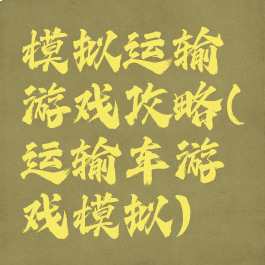 模拟运输
游戏攻略(
运输车游
戏模拟)